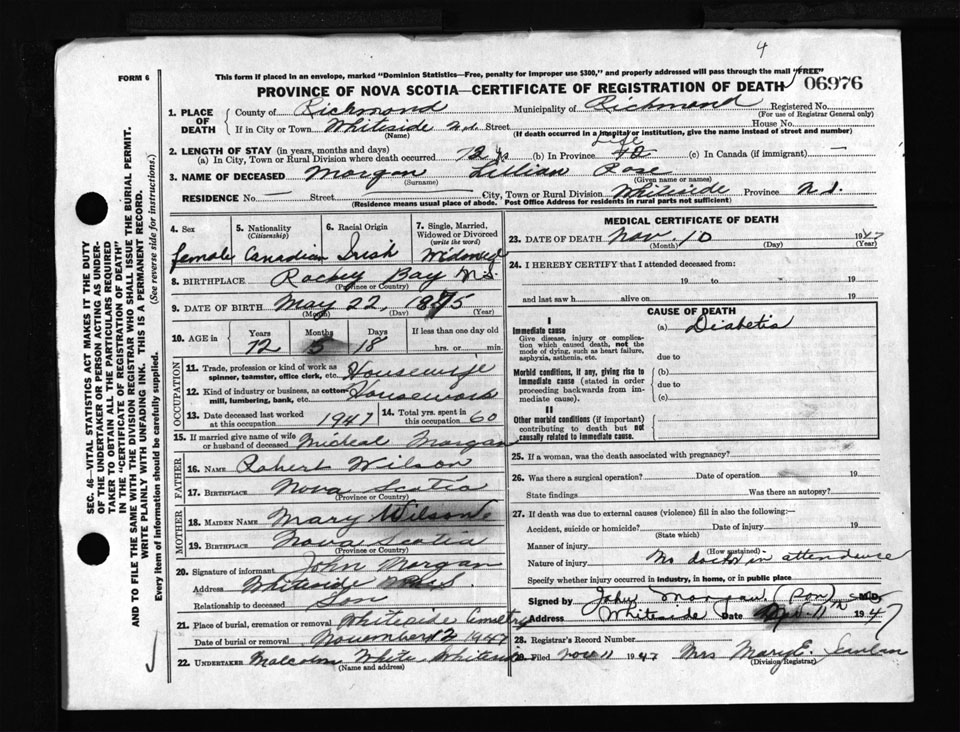 4
FORM 6
This form if placed in an envelope, marked "Dominion Statistics—Free, penalty for improper use $300," and properly addressed will pass through the mail "FREE"
PROVINCE OF NOVA SCOTIA—CERTIFICATE OF REGISTRATION OF DEATH 06976
SEC. 46—VITAL STATISTICS ACT MAKES IT THE DUTY
OF THE UNDERTAKER OR PERSON ACTING AS UNDER-
TAKER TO OBTAIN ALL THE PARTICULARS REQUIRED
IN THE "CERTIFICATE OF REGISTRATION OF DEATH"
AND TO FILE THE SAME WITH THE DIVISION REGISTRAR WHO SHALL ISSUE THE BURIAL PERMIT.
WRITE PLAINLY WITH UNFADING INK. THIS IS A PERMANENT RECORD.
Every item of information should be carefully supplied. (See reverse side for instructions.)
1. PLACE OF DEATH
County of Richmond Municipality of Richmond Registered No.
(For use of Registrar General only)
If in City or Town Whiteside N.S. Street House No.
(Name) (If death occurred in a hospital or institution, give the name instead of street and number)
2. LENGTH OF STAY (in years, months and days) Life
(a) In City, Town or Rural Division where death occurred 72 yrs (b) In Province 72 (c) In Canada (if immigrant) —
3. NAME OF DECEASED Morgan Lillian Rose
(Surname) (Given name or names)
RESIDENCE No. — Street City, Town or Rural Division Whiteside Province N.S.
(Residence means usual place of abode. Post Office Address for residents in rural parts not sufficient)
4. Sex
female
5. Nationality
(Citizenship)
Canadian
6. Racial Origin
Irish
7. Single, Married,
Widowed or Divorced
(write the word)
Widowed
8. BIRTHPLACE Rocky Bay N.S.
(Province or Country)
9. DATE OF BIRTH May 22, 1875
(Month) (Day) (Year)
10. AGE in Years Months Days If less than one day old
72 5 18 hrs. or min.
OCCUPATION
11. Trade, profession or kind of work as
spinner, teamster, office clerk, etc. Housewife
12. Kind of industry or business, as cotton
mill, lumbering, bank, etc. Housework
13. Date deceased last worked
at this occupation 1947
14. Total yrs. spent in
this occupation 60
15. If married give name of wife
or husband of deceased Micheal Morgan
FATHER
16. NAME Robert Wilson
17. BIRTHPLACE Nova Scotia
(Province or Country)
MOTHER
18. MAIDEN NAME Mary Wilson
19. BIRTHPLACE Nova Scotia
(Province or Country)
20. Signature of informant John Morgan
Address Whiteside
Relationship to deceased Son
21. Place of burial, cremation or removal Whiteside Cemetry
Date of burial or removal November 12 1947
22. UNDERTAKER Malcolm White Whiteside
(Name and address)
MEDICAL CERTIFICATE OF DEATH
23. DATE OF DEATH Nov. 10 1947
(Month) (Day) (Year)
24. I HEREBY CERTIFY that I attended deceased from:
19 to 19
and last saw h alive on 19
CAUSE OF DEATH
I
Immediate cause (a) Diabetis
Give disease, injury or complica-
tion which caused death, not the
mode of dying, such as heart failure,
asphyxia, asthenia, etc. due to
Morbid conditions, if any, giving rise to
immediate cause (stated in order
proceeding backwards from im-
mediate cause). (b)
due to
(c)
II
Other morbid conditions (if important)
contributing to death but not
causally related to immediate cause.
25. If a woman, was the death associated with pregnancy?
26. Was there a surgical operation? Date of operation 19
State findings Was there an autopsy?
27. If death was due to external causes (violence) fill in also the following:—
Accident, suicide or homicide? Date of injury 19
(State which)
Manner of injury
(How sustained)
Nature of injury No doctor in attendence
Specify whether injury occurred in industry, in home, or in public place
Signed by John Morgan (Son) M.D.
Address Whiteside Date 11th 1947
28. Registrar's Record Number
Filed Nov 11 1947 Mrs Mary E. Scanlan
(Division Registrar)